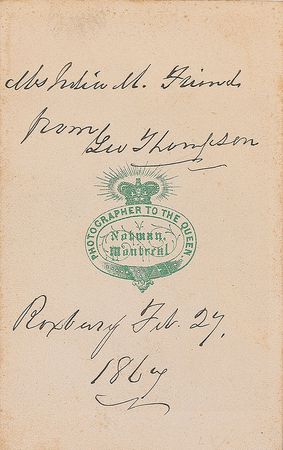 Mrs Julia M. Friend
from
Geo Thompson
PHOTOGRAPHER TO THE QUEEN
Notman,
Montreal
Roxbury Feb. 27.
1867